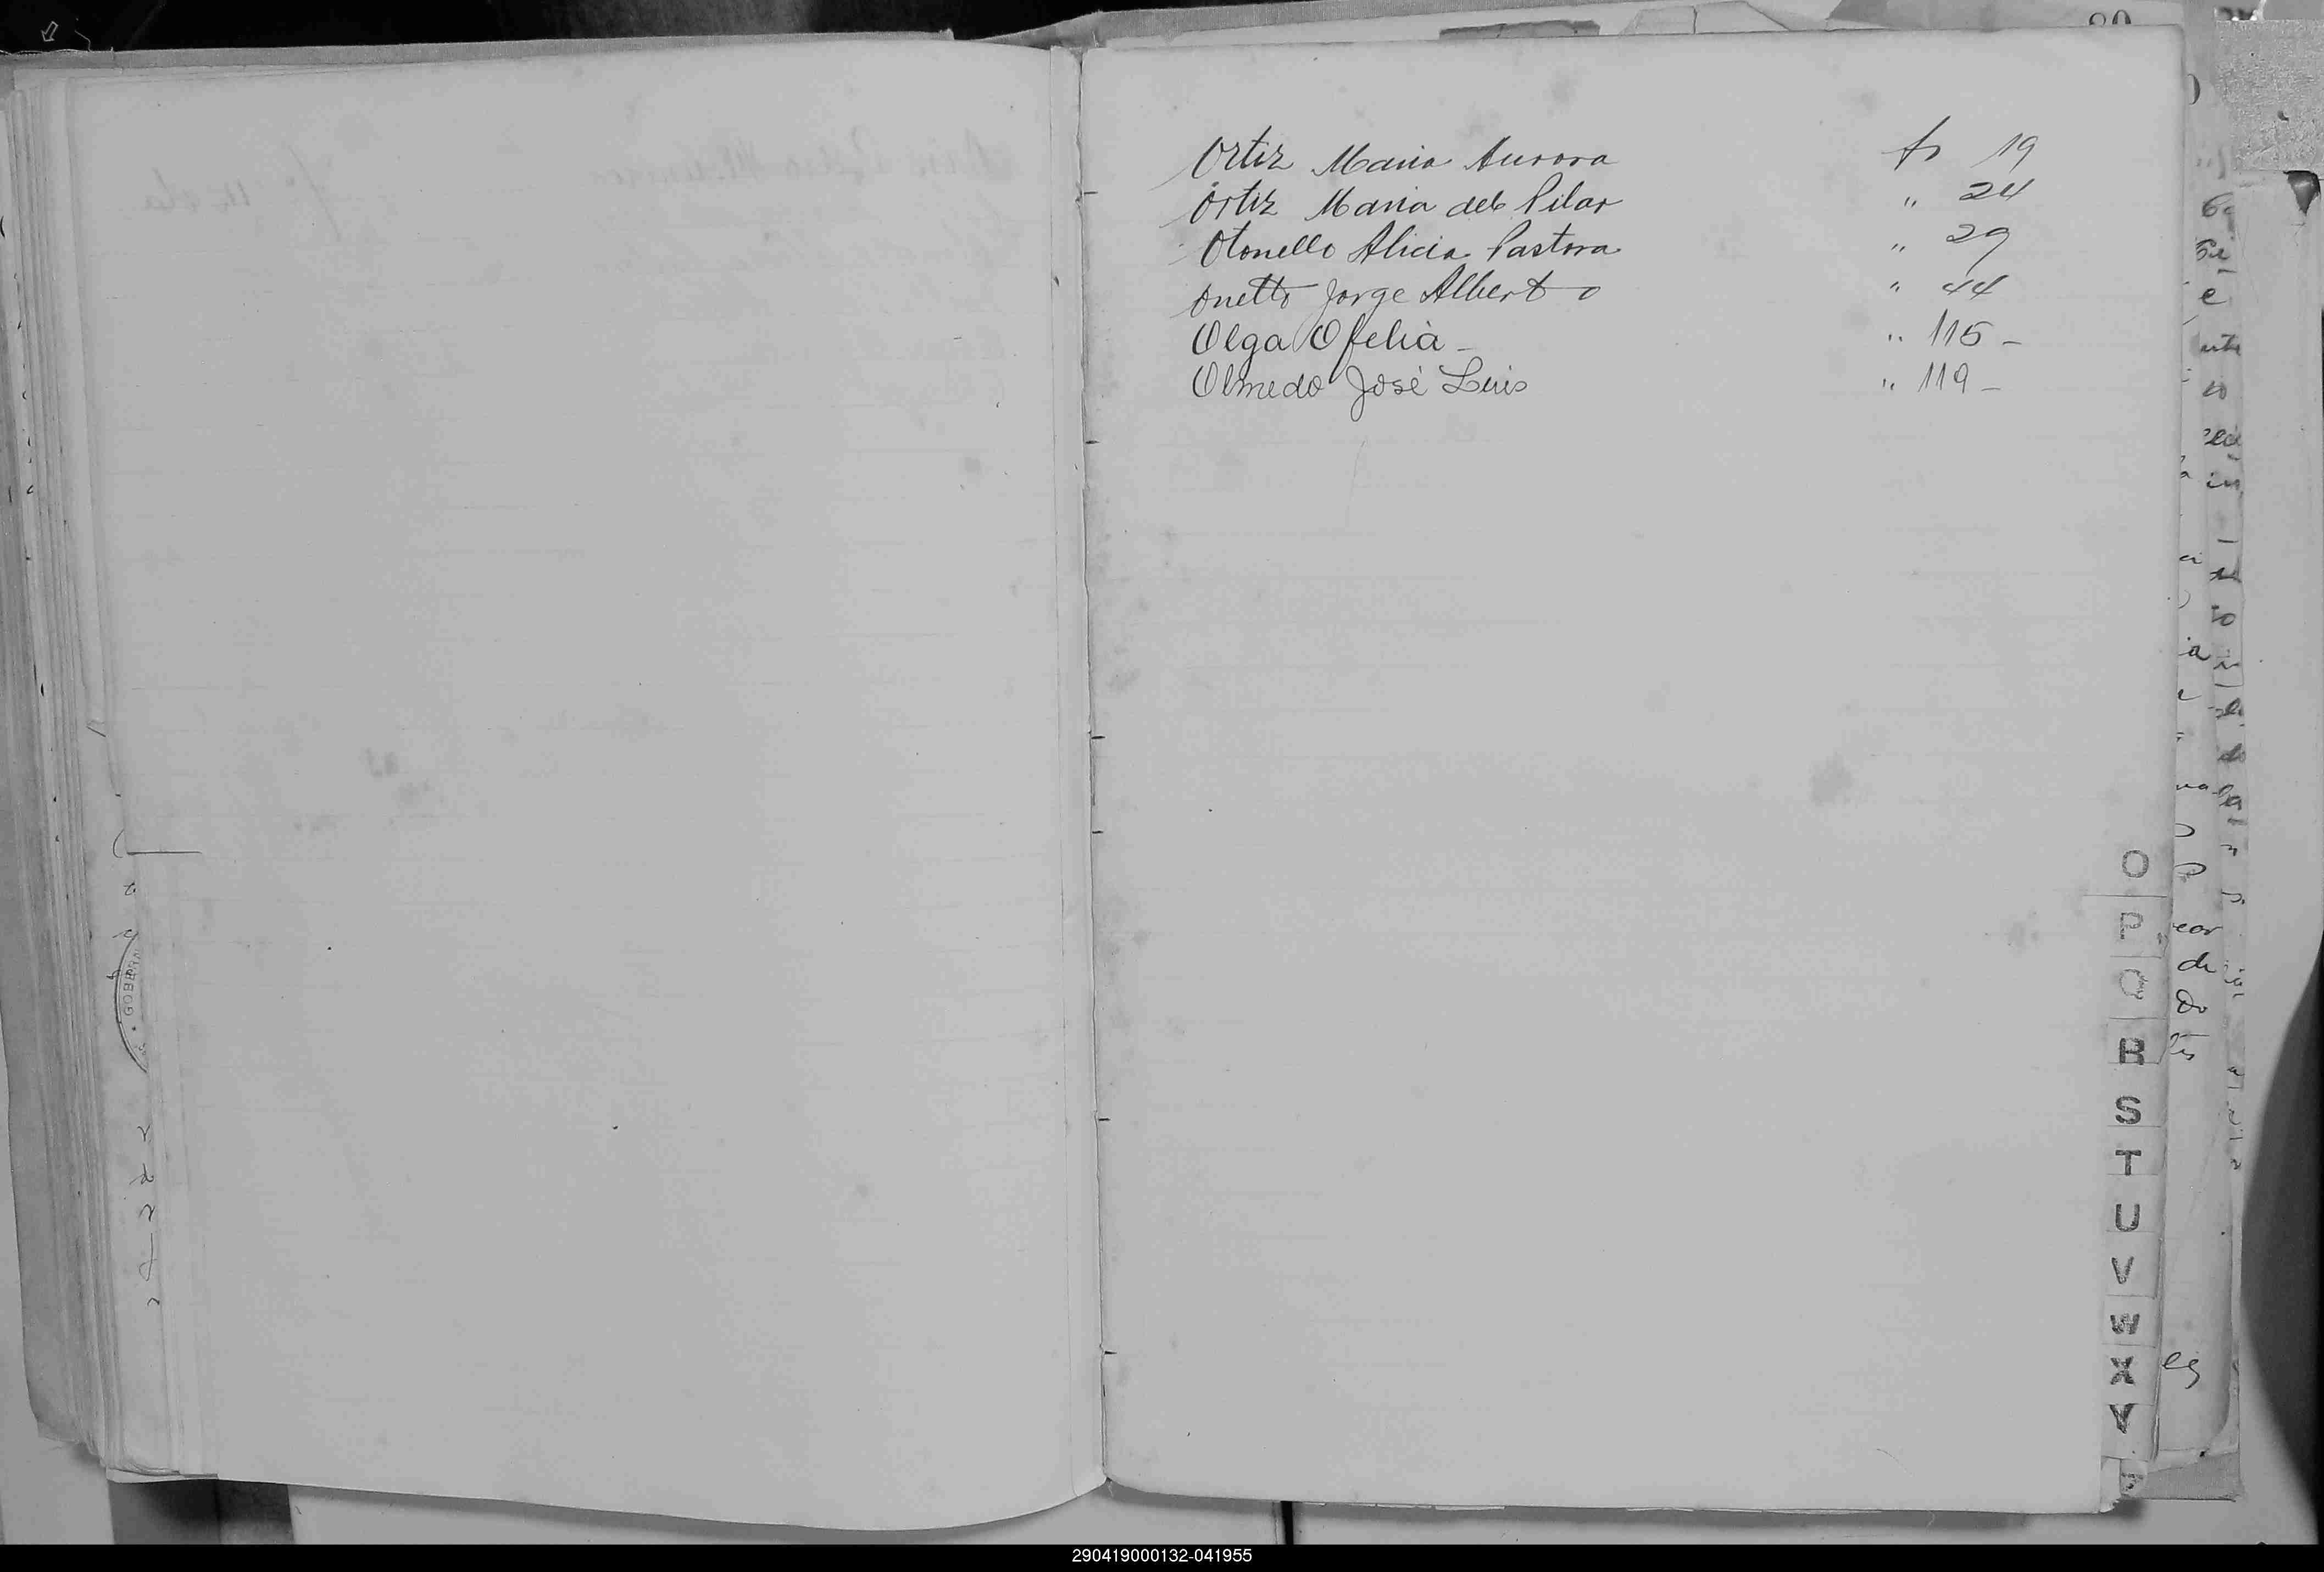 Ortiz Maria Aurora fs 19
Ortiz Maria del Pilar " 24
Otonello Alicia Pastora " 29
Onetto Jorge Alberto " 44
Olga Ofelia - " 115 -
Olmedo José Luis " 119 -
O
P
Q
R
S
T
U
V
W
X
Y
Z
290419000132-041955